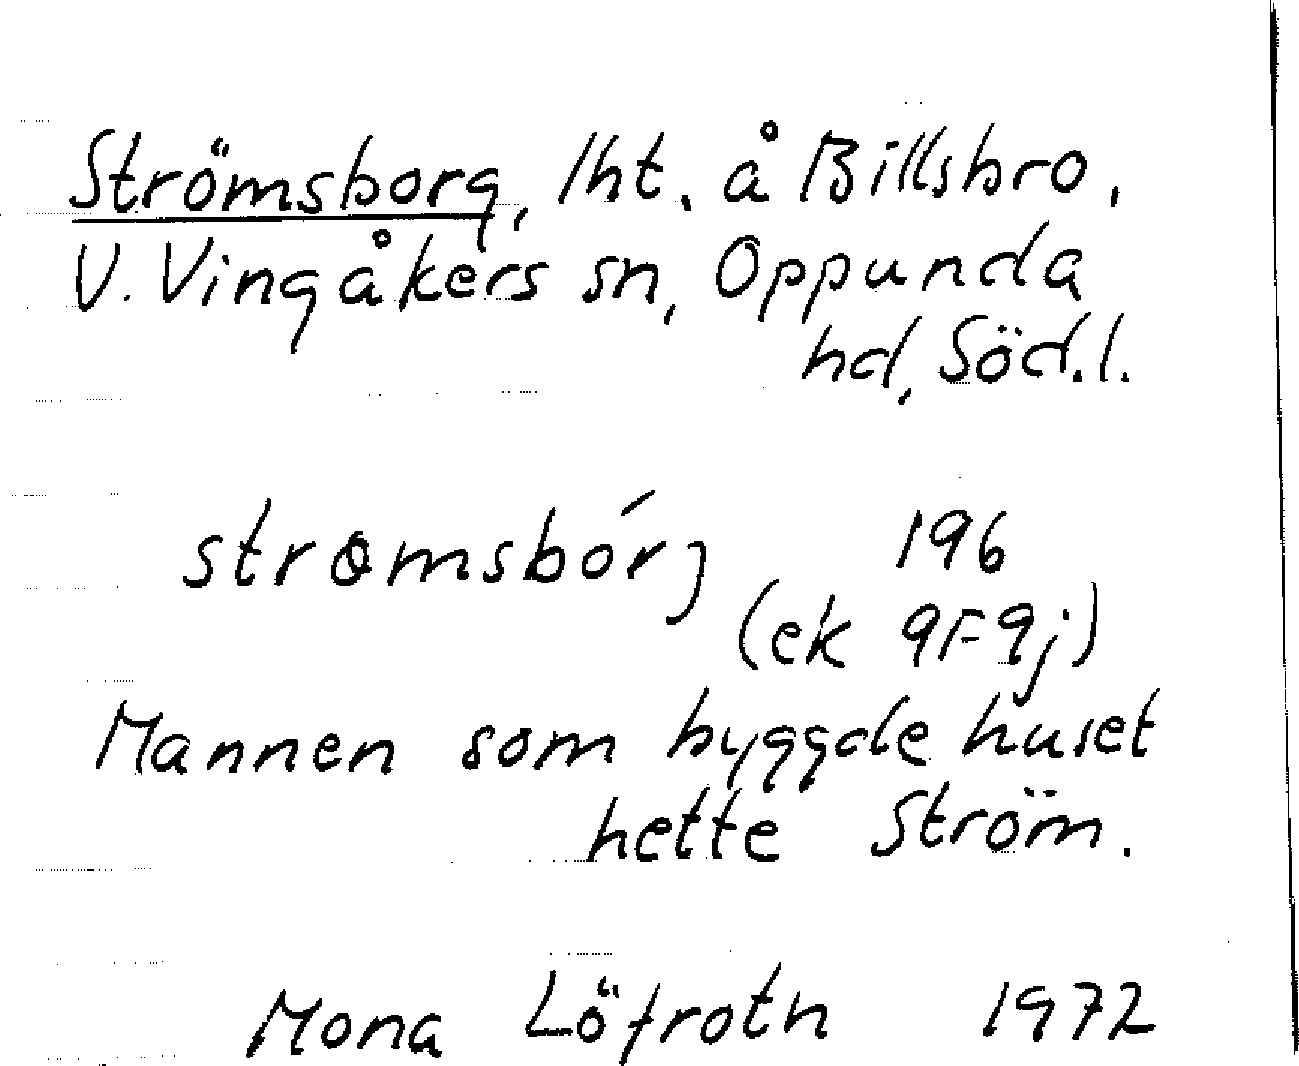 Strömsborg, lht. å Billsbro,
V. Vingåkers sn, Oppunda
hd, Söd.l.
strømsbórj 196
(ek 9F9j)
Mannen som byggde huset
hette Ström.
Mona Löfroth 1972